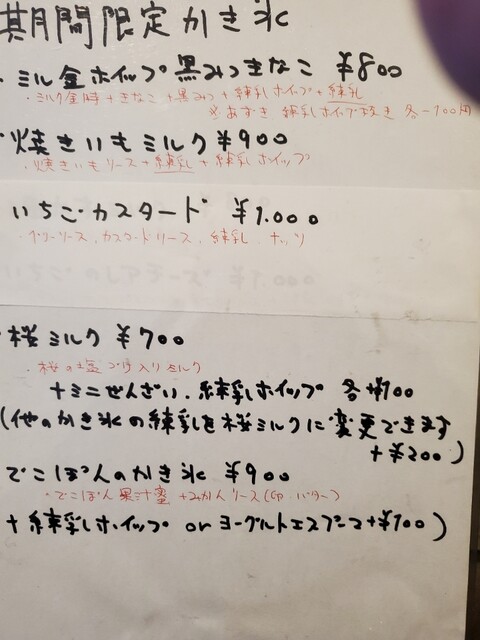 期間限定かき氷
・ミル金ホイップ黒みつきなこ ¥800
・ミルク金時+きなこ+黒みつ+練乳ホイップ+練乳
※あずき、練乳ホイップ抜き 各-100円
・焼きいもミルク ¥900
・焼きいもソース+練乳+練乳ホイップ
いちごカスタード ¥1.000
・ベリーソース、カスタードソース、練乳、ナッツ
・桜ミルク ¥700
・桜の塩づけ入りミルク
+ミニぜんざい、練乳ホイップ 各+¥100
(他のかき氷の練乳を桜ミルクに変更できます
+¥200)
でこぽんのかき氷 ¥900
・でこぽん果汁蜜 +みかんソース(卵 バター)
+練乳ホイップ or ヨーグルトエスプーマ+¥100)